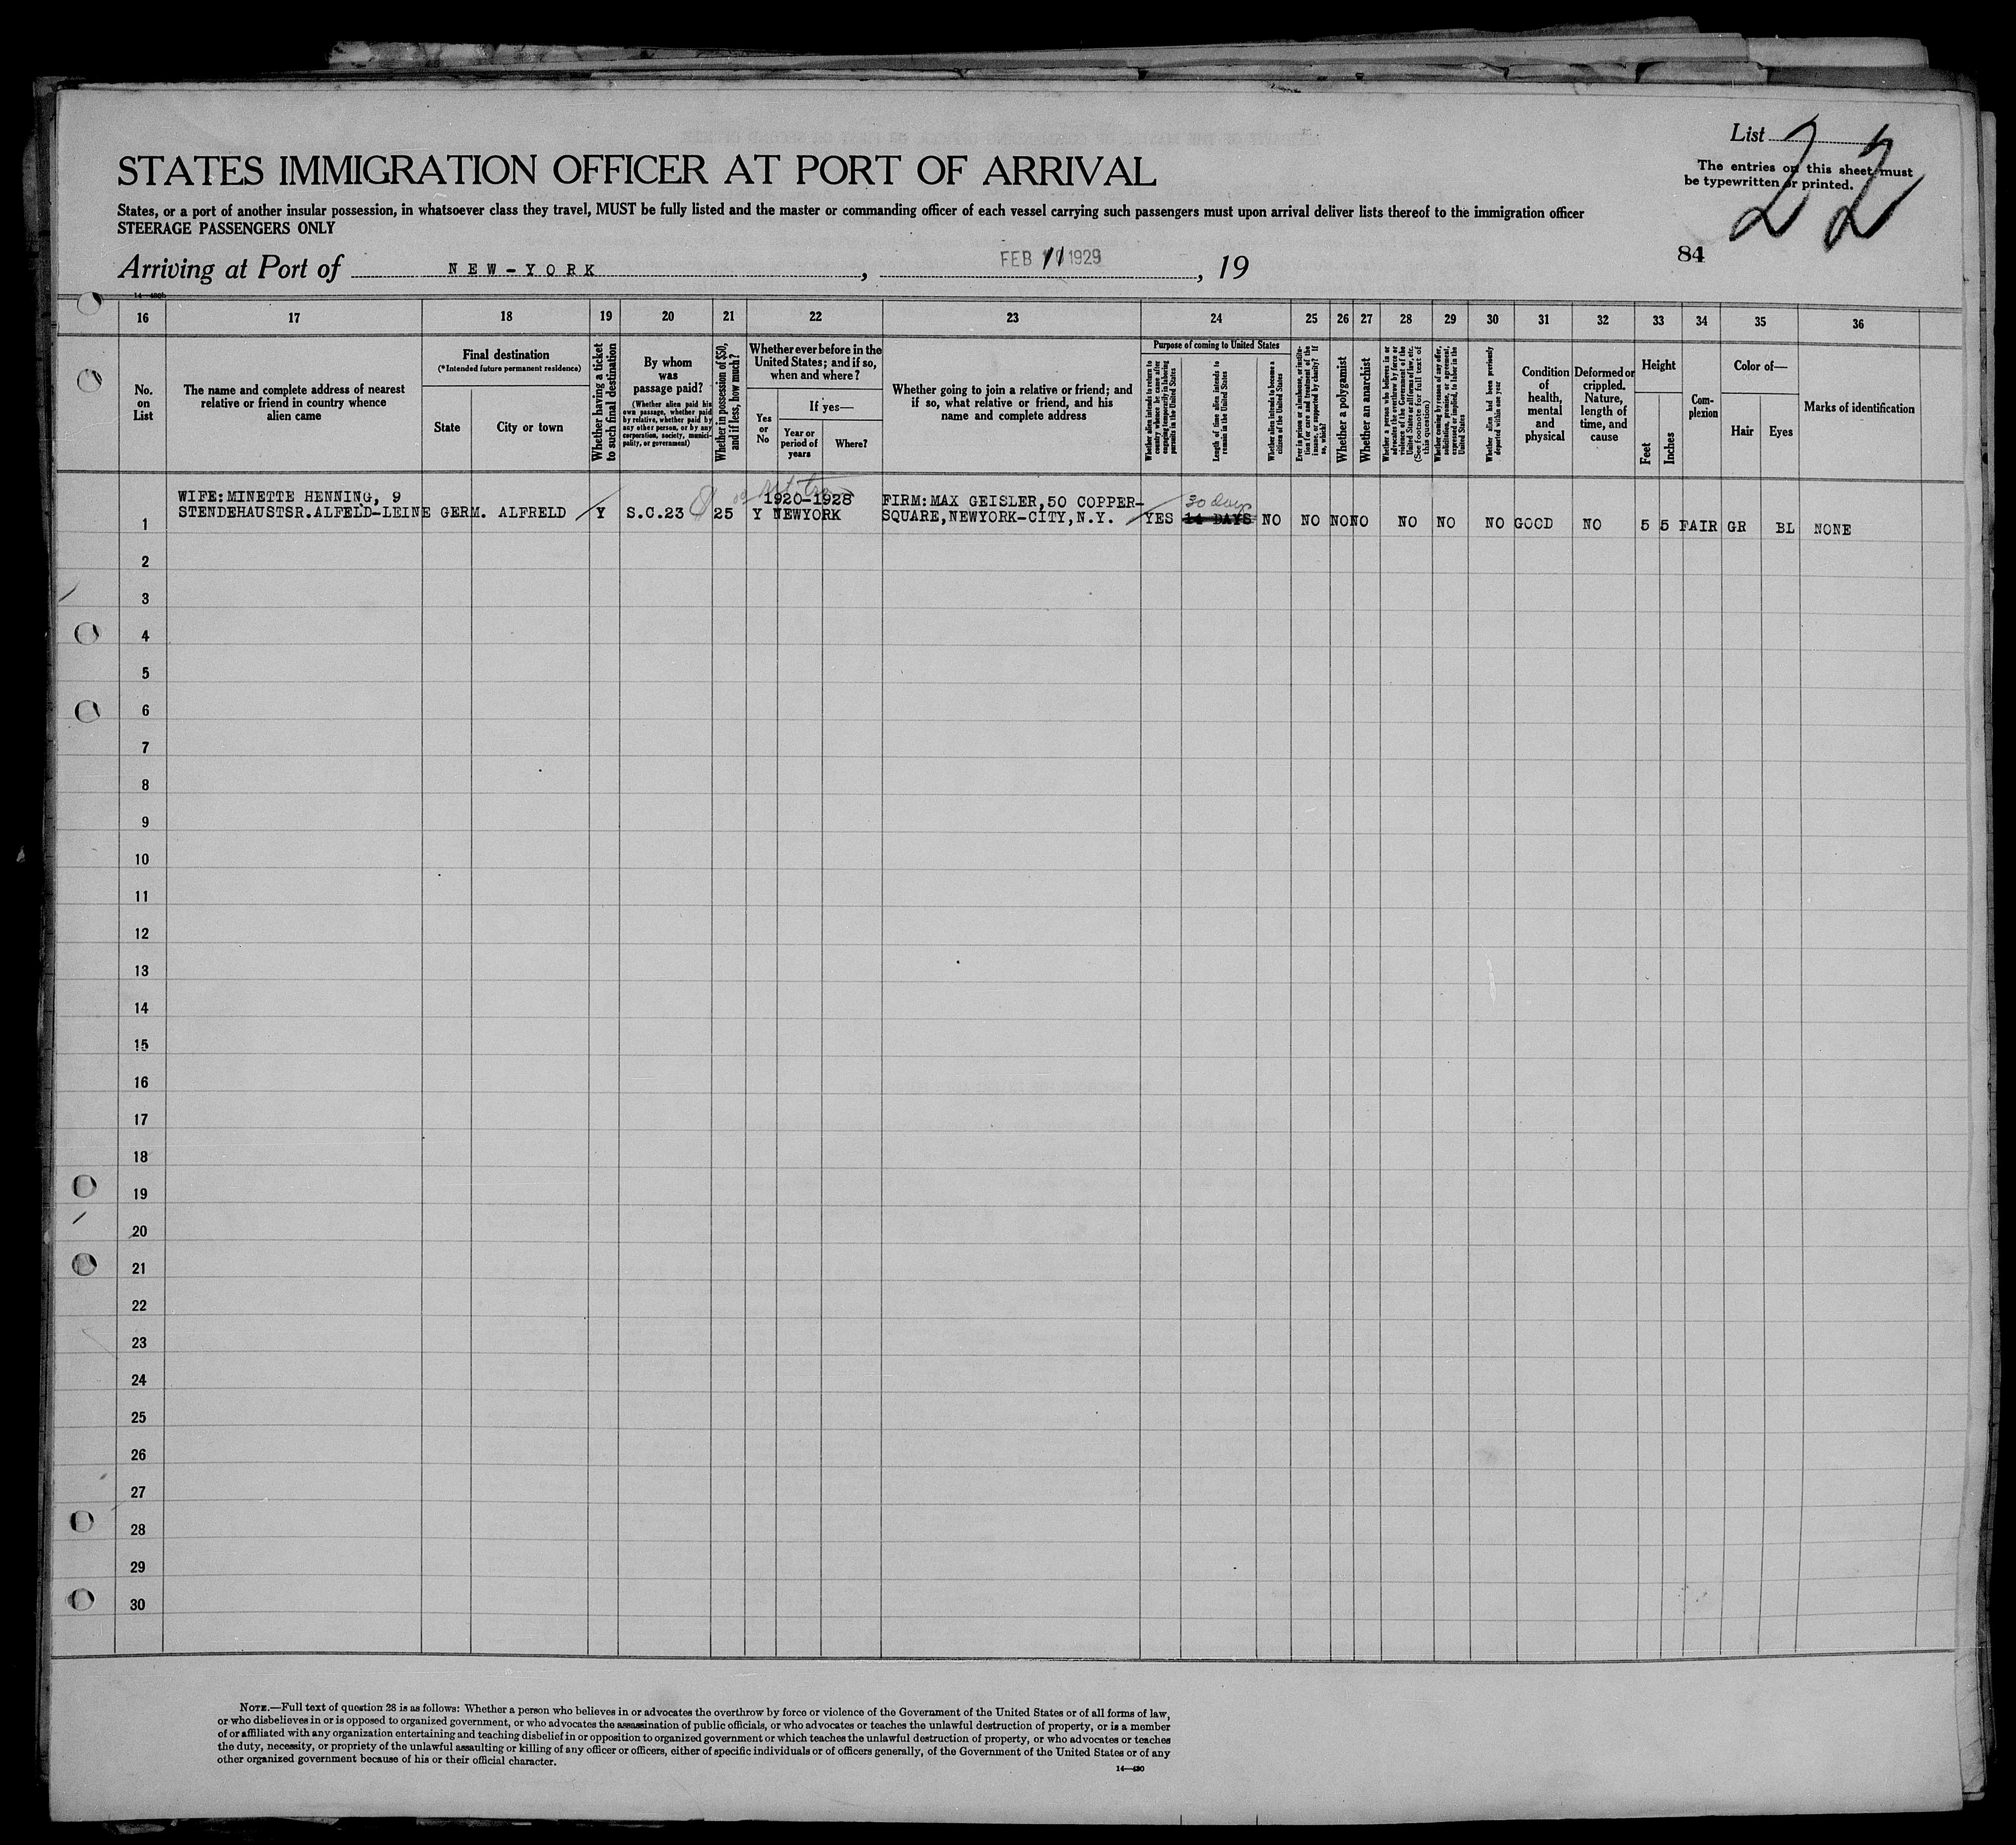 List 22
STATES IMMIGRATION OFFICER AT PORT OF ARRIVAL
The entries on this sheet must
be typewritten or printed.
States, or a port of another insular possession, in whatsoever class they travel, MUST be fully listed and the master or commanding officer of each vessel carrying such passengers must upon arrival deliver lists thereof to the immigration officer
STEERAGE PASSENGERS ONLY
84
Arriving at Port of NEW-YORK, FEB 11 1929, 19
16 17 18 19 20 21 22 23 24 25 26 27 28 29 30 31 32 33 34 35 36
No.
on
List
The name and complete address of nearest
relative or friend in country whence
alien came
Final destination
(*Intended future permanent residence)
State
City or town
Whether having a ticket
to such final destination
By whom
was
passage paid?
(Whether alien paid his
own passage, whether paid
by relative, whether paid by
any other person, or by any
corporation, society, munici-
pality, or government)
Whether in possession of $50,
and if less, how much?
Whether ever before in the
United States; and if so,
when and where?
Yes
or
No
If yes—
Year or
period of
years
Where?
Whether going to join a relative or friend; and
if so, what relative or friend, and his
name and complete address
Purpose of coming to United States
Whether alien intends to return to
country whence he came after
engaging temporarily in laboring
pursuits in the United States
Length of time alien intends to
remain in the United States
Whether alien intends to become a
citizen of the United States
Ever in prison or almshouse, or institu-
tion for care and treatment of the
insane, or supported by charity? If
so, which?
Whether a polygamist
Whether an anarchist
Whether a person who believes in or
advocates the overthrow by force or
violence of the Government of the
United States or all forms of law, etc.
(See footnote for full text of
this question)
Whether coming by reason of any offer,
solicitation, promise, or agreement,
expressed or implied, to labor in the
United States
Whether alien had been previously
deported within one year
Condition
of
health,
mental
and
physical
Deformed or
crippled.
Nature,
length of
time, and
cause
Height
Feet
Inches
Com-
plexion
Color of—
Hair
Eyes
Marks of identification
WIFE:MINETTE HENNING, 9 1920-1928 FIRM:MAX GEISLER,50 COPPER- 30 days
1 STENDEHAUSTSR.ALFELD-LEINE GERM. ALFRELD Y S.C.23 25 Y NEWYORK SQUARE,NEWYORK-CITY,N.Y. YES 14 DAYS NO NO NO NO NO NO NO GOOD NO 5 5 FAIR GR BL NONE
2
3
4
5
6
7
8
9
10
11
12
13
14
15
16
17
18
19
20
21
22
23
24
25
26
27
28
29
30
NOTE.—Full text of question 28 is as follows: Whether a person who believes in or advocates the overthrow by force or violence of the Government of the United States or of all forms of law,
or who disbelieves in or is opposed to organized government, or who advocates the assassination of public officials, or who advocates or teaches the unlawful destruction of property, or is a member
of or affiliated with any organization entertaining and teaching disbelief in or opposition to organized government or which teaches the unlawful destruction of property, or who advocates or teaches
the duty, necessity, or propriety of the unlawful assaulting or killing of any officer or officers, either of specific individuals or of officers generally, of the Government of the United States or of any
other organized government because of his or their official character.
14—430